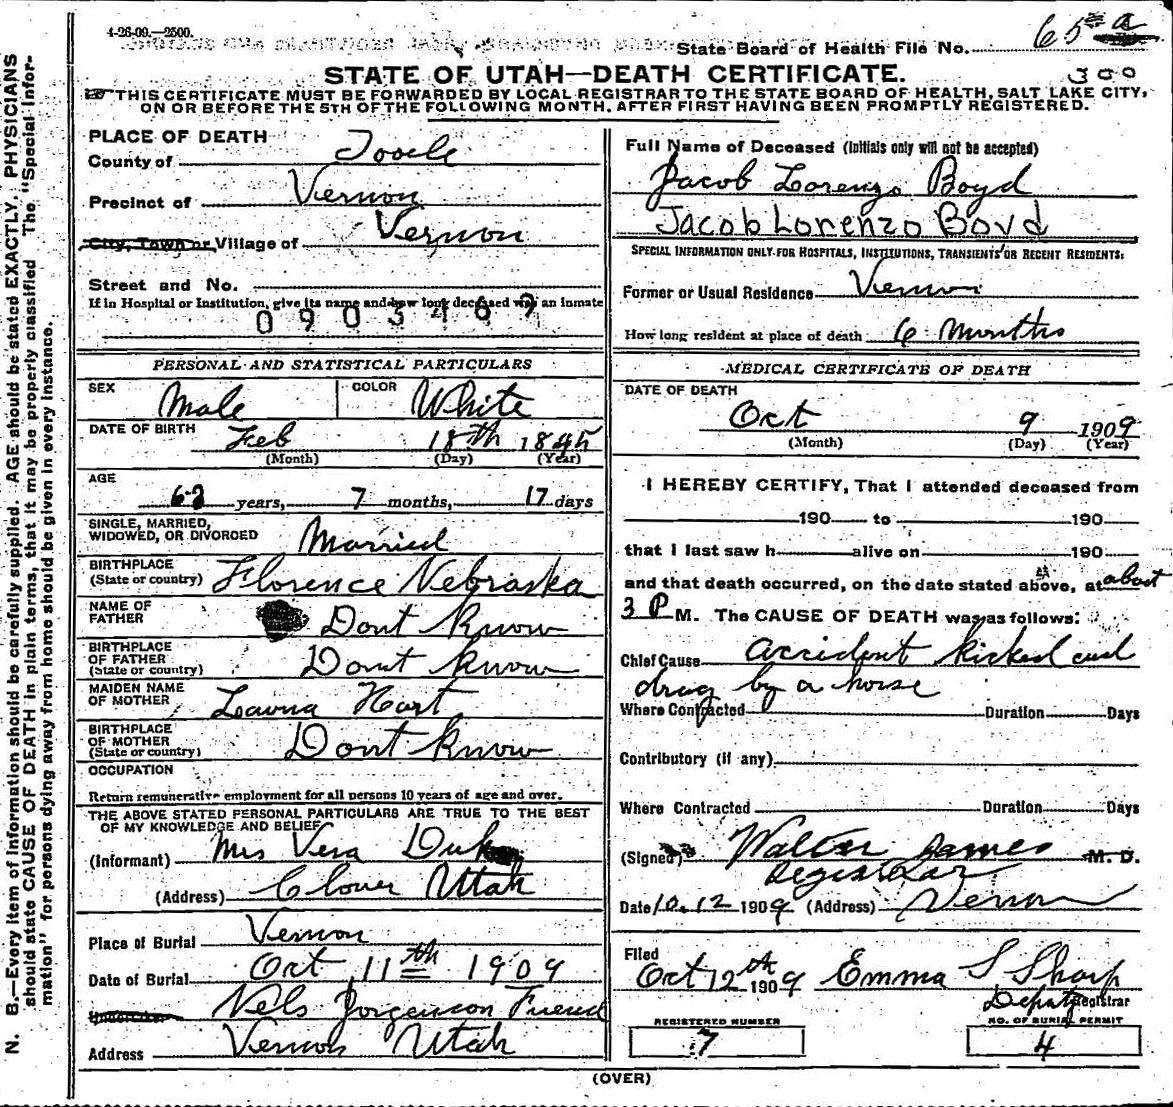 4-26-09.—2500.
State Board of Health File No. 65 a
STATE OF UTAH—DEATH CERTIFICATE.
300
THIS CERTIFICATE MUST BE FORWARDED BY LOCAL REGISTRAR TO THE STATE BOARD OF HEALTH, SALT LAKE CITY,
ON OR BEFORE THE 5TH OF THE FOLLOWING MONTH. AFTER FIRST HAVING BEEN PROMPTLY REGISTERED.
N. B.—Every item of information should be carefully supplied. AGE should be stated EXACTLY. PHYSICIANS
should state CAUSE OF DEATH in plain terms, that it may be properly classified. The "Special Infor-
mation" for persons dying away from home should be given in every instance.
PLACE OF DEATH
County of Tooele
Precinct of Vernon
City, Town or Village of Vernon
Street and No.
If in Hospital or Institution, give its name and how long deceased was an inmate
0903469
PERSONAL AND STATISTICAL PARTICULARS
SEX Male COLOR White
DATE OF BIRTH Feb 18th 1845
(Month) (Day) (Year)
AGE
62 years, 7 months, 17 days
SINGLE, MARRIED,
WIDOWED, OR DIVORCED Married
BIRTHPLACE
(State or country) Florence Nebraska
NAME OF
FATHER Dont Know
BIRTHPLACE
OF FATHER
(State or country) Dont Know
MAIDEN NAME
OF MOTHER Lavina Hart
BIRTHPLACE
OF MOTHER
(State or country) Dont Know
OCCUPATION
Return remunerative employment for all persons 10 years of age and over.
THE ABOVE STATED PERSONAL PARTICULARS ARE TRUE TO THE BEST
OF MY KNOWLEDGE AND BELIEF
(Informant) Mrs Vera Duk
(Address) Clover Utah
Place of Burial Vernon
Date of Burial Oct 11th 1909
Undertaker Nels Jorgenson Friend
Address Vernon Utah
Full Name of Deceased (Initials only will not be accepted)
Jacob Lorenzo Boyd
Jacob Lorenzo Boyd
SPECIAL INFORMATION ONLY FOR HOSPITALS, INSTITUTIONS, TRANSIENTS OR RECENT RESIDENTS:
Former or Usual Residence Vernon
How long resident at place of death 6 Months
MEDICAL CERTIFICATE OF DEATH
DATE OF DEATH
Oct 9 1909
(Month) (Day) (Year)
I HEREBY CERTIFY, That I attended deceased from
190 to 190
that I last saw h alive on 190
and that death occurred, on the date stated above, at about
3 P M. The CAUSE OF DEATH was as follows:
Chief Cause accident kicked and
drag by a horse
Where Contracted Duration Days
Contributory (if any)
Where Contracted Duration Days
(Signed) Walter James M. D.
Registrar
Date 10.12 1909 (Address) Vernon
Filed
Oct 12th 1909 Emma S Sharp
Deputy Registrar
REGISTERED NUMBER
7
NO. OF BURIAL PERMIT
4
(OVER)